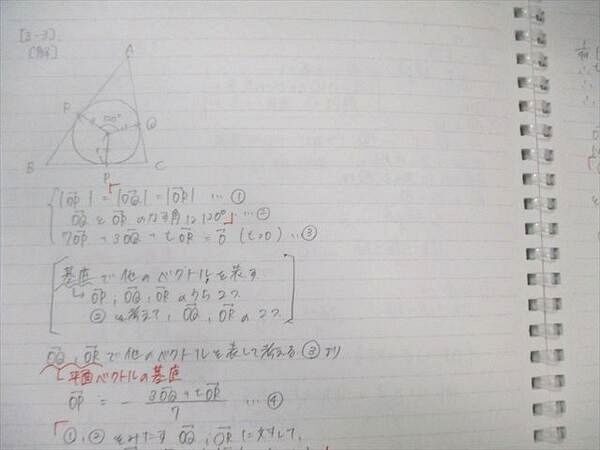 [3-3]
[解]
A
R
120°
Q
B
P
C
|OP| = |OQ| = |OR| … ①
OQとORのなす角は120° … ②
7OP + 3OQ + tOR = 0 (t>0) … ③
基底で他のベクトルを表す
↳ OP, OQ, ORのうち2つ
②を考えて, OQ, ORの2つ
OQ, ORで他のベクトルを表して考える ③より
平面ベクトルの基底
OP = - (3OQ + tOR)/7 … ④
①, ②をみたす OQ, ORに対して,